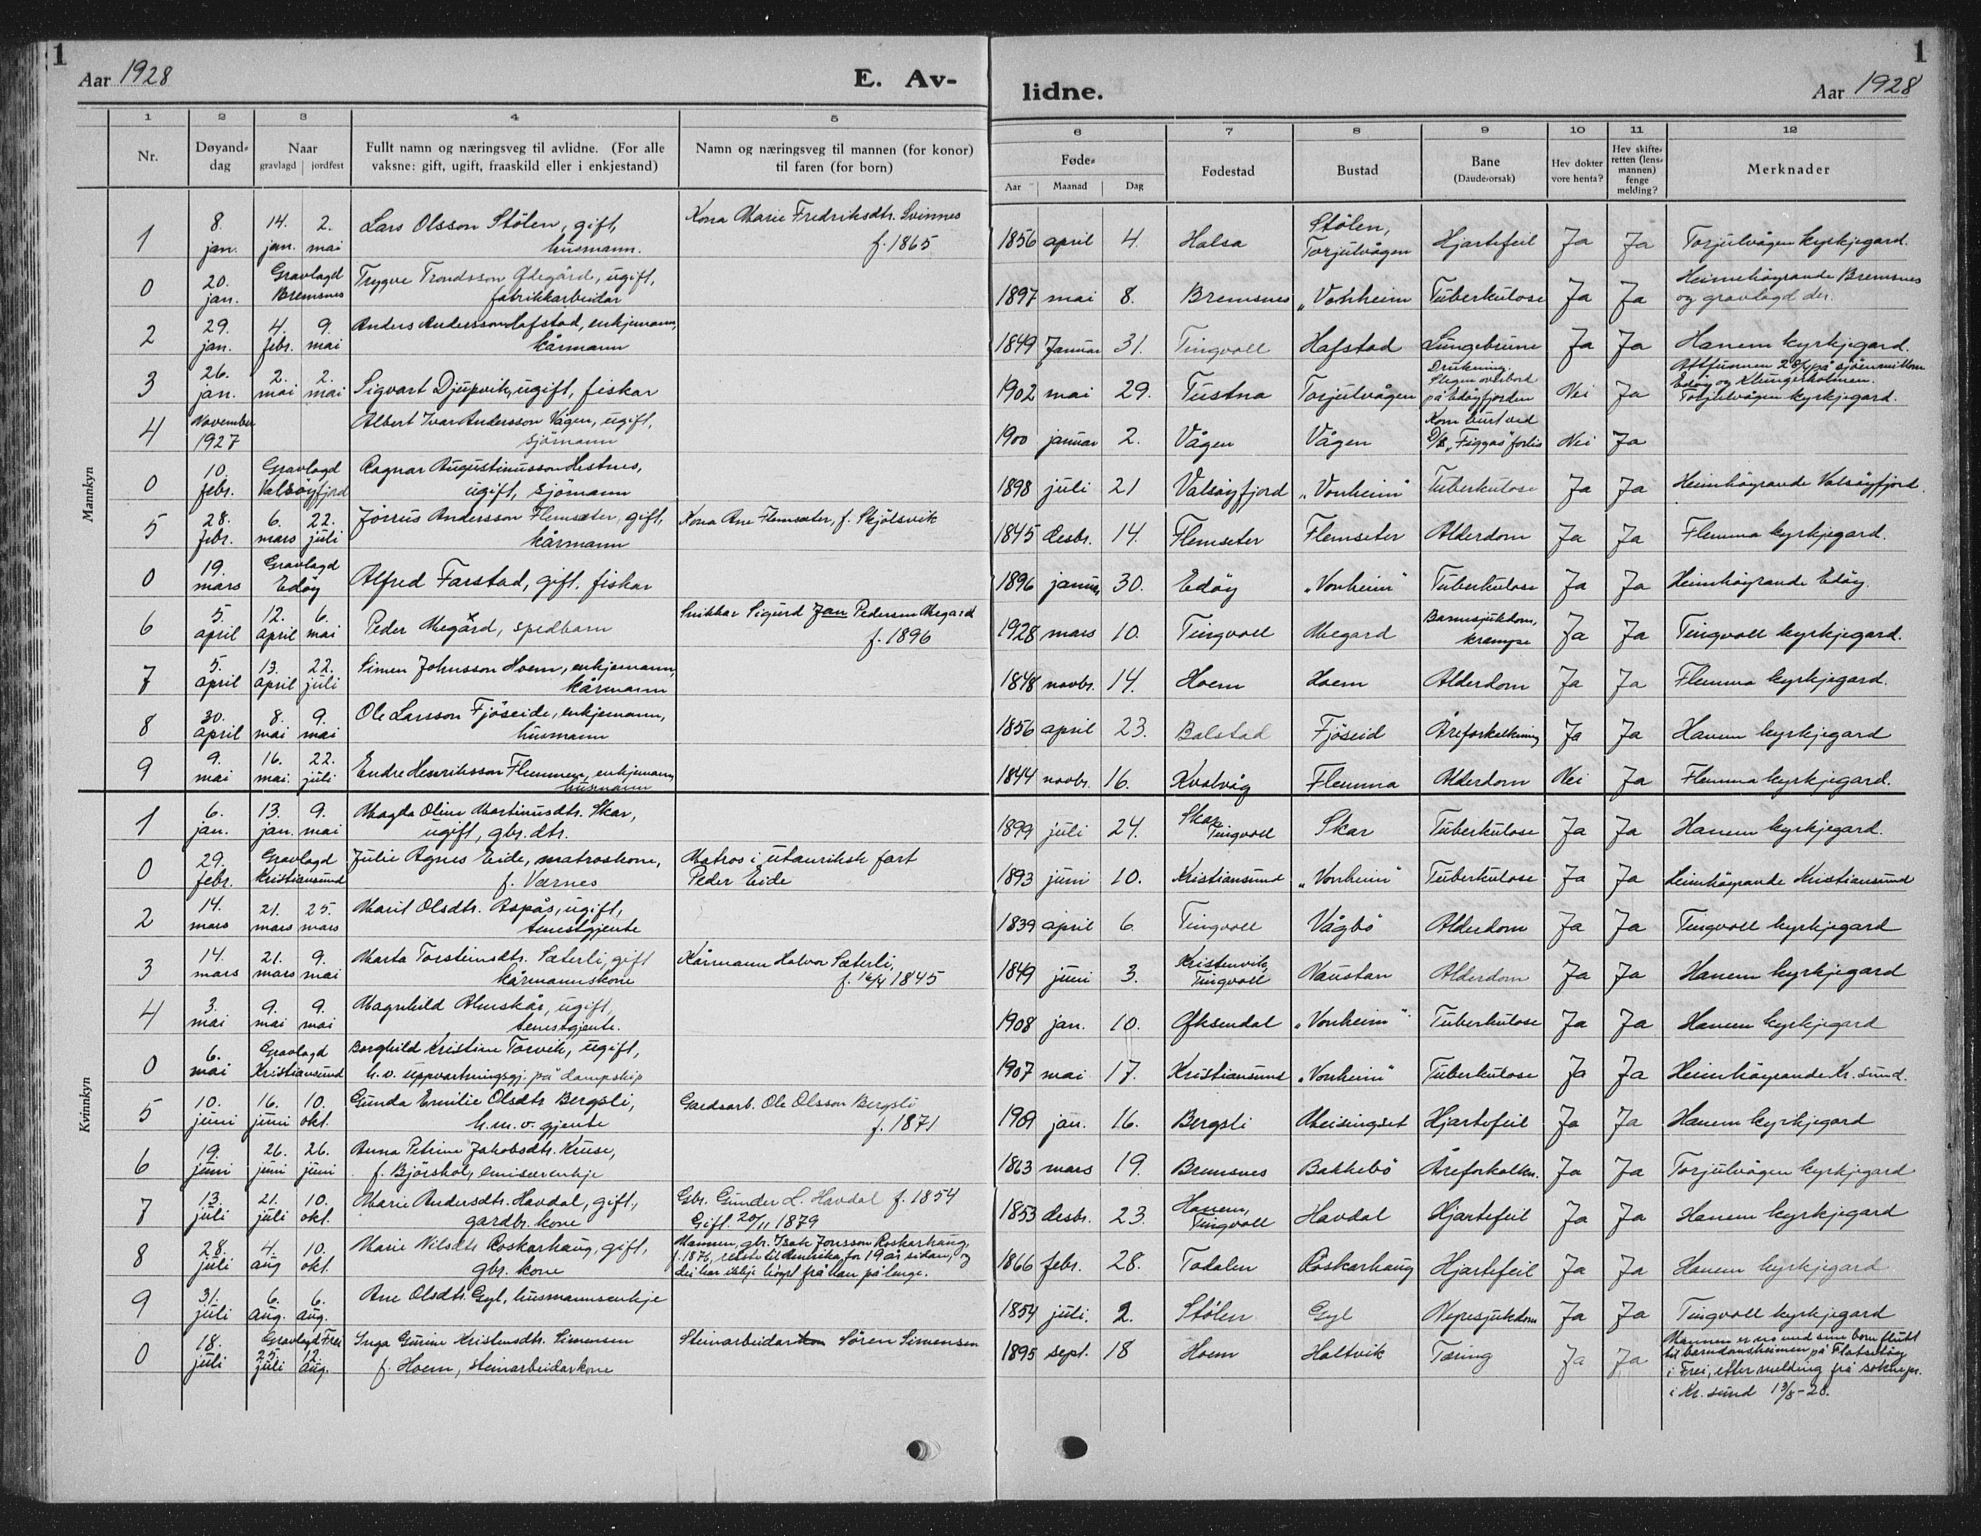 1
Aar 1928
E. Av-
lidne.
Aar 1928
1
1 2 3 4 5 6 7 8 9 10 11 12
Nr. Døyand-dag Naar gravlagd jordfest Fullt namn og næringsveg til avlidne. (For alle vaksne: gift, ugift, fraaskild eller i enkjestand) Namn og næringsveg til mannen (for konor) til faren (for born) Føde- Aar Maanad Dag Fødestad Bustad Bane (Daude-orsak) Hev dokter vore henta? Hev skifte-retten (lens-mannen) fenge melding? Merknader
Mannkyn
1 8. jan. 14. jan. 2. mai Lars Olsson Stölen, gift, husmann. Kona Marie Fredriksdtr. Svinnes f. 1865 1856 april 4. Halsa Stölen, Torjulvågen Hjartefeil Ja Ja Torjulvågen kyrkjegard.
0 20. jan. Gravlagd Bremsnes Trygve Trondsson Ødegård, ugift, fabrikkarbeidar 1897 mai 8. Bremsnes "Vonheim Tuberkulose Ja Ja Heimehöyrande Bremsnes og gravlagd der.
2 29. jan. 4. febr. 9. mai Anders Andersson Hafstad, enkjemann, kårmann 1849 Januar 31. Tingvoll Hafstad Lungebrune Ja Ja Hanem kyrkjegard.
3 26. jan. 2. mai 2. mai Sigvart Djupvik, ugift, fiskar 1902 mai 29. Tustna Torjulvågen Drukning. Slegen overbord på Edöyfjorden Nei Ja Attfunnen 28/4 på sjöen millom Edöy og Klingerholmen. Torjulvågen kyrkjegard.
4 November 1927 Albert Ivar Andersson Vågen, ugift, sjömann 1900 januar 2. Vågen Vågen Kom burt ved D/S "Figgas" forlis Nei Ja
0 10. febr. Gravlagd Valsöyfjord Ragnar Augustinusson Hestnes, ugift, sjömann 1898 juli 21 Valsöyfjord "Vonheim" Tuberkulose Ja Ja Heimhöyrande Valsöyfjord.
5 28. febr. 6. mars 22. juli Jörrus Andersson Flemsæter, gift, kårmann Kona Ane Flemsæter, f. Skjölsvik 1845 desbr. 14. Flemseter Flemseter Alderdom Ja Ja Flemma kyrkjegard.
0 19. mars Gravlagd Edöy Alfred Farstad, gift, fiskar 1896 januar 30. Edöy "Vonheim" Tuberkulose Ja Ja Heimhöyrande Edöy.
6 5. april 12. april 6. mai Peder Megård, spedbarn Snikkar Sigurd Jan Pedersen Megard f. 1896 1928 mars 10. Tingvoll Megard Barnesjukdom, krampe Ja Ja Tingvoll kyrkjegard.
7 5. april 13. april 22. juli Simen Johnsson Hoem, enkjemann, kårmann 1848 novbr. 14. Hoem Hoem Alderdom Ja Ja Flemma kyrkjegard.
8 30. april 8. mai 9. mai Ole Larsson Fjöseide, enkjemann, husmann 1856 april 23. Balstad Fjöseid Åreforkalkning Ja Ja Hanem kyrkjegard
9 9. mai 16. mai. 22. juli Endre Henriksson Flemmen, enkjemann, husmann 1844 novbr. 16. Kvalvåg Flemma Alderdom Nei Ja Flemma kyrkjegard.
Kvinnkyn
1 6. jan. 13. jan. 9. mai Magda Oline Martinusdtr. Skar, ugift, gbr. dtr. 1899 juli 24. Skar Tingvoll Skar Tuberkulose Ja Ja Hanem kyrkjegard.
0 29. febr. Gravlagd Kristiansund Julie Agnes Eide, matroskone, f. Værnes Matros i utanriksk fart Peder Eide 1893 juni 10. Kristiansund "Vonheim" Tuberkulose Ja Ja Heimhöyrande Kristiansund
2 14. mars 21. mars 25. mars Marit Olsdtr. Aspås, ugift, tenestgjente 1839 april 6. Tingvoll Vågbö Alderdom Ja Ja Tingvoll kyrkjegard
3 14. mars 21. mars 9. mai Marta Torsteinsdtr. Sæterli, gift kårmannskone Kårmann Halvor Sæterli, f. 16/4 1845 1849 juni 3. Kristenvik, Tingvoll Naustan Alderdom Ja Ja Hanem kyrkjegard
4 3. mai 9. mai 9. mai Magnhild Almskår, ugift, tenestgjente. 1908 jan. 10. Øksendal "Vonheim" Tuberkulose Ja Ja Hanem kyrkjegard
0 6. mai Gravlagd Kristiansund Borghild Kristine Torvik, ugift, h. v. uppvartningsgj. på dampskip 1907 mai 17. Kristiansund "Vonheim" Tuberkulose Ja Ja Heimhöyrande Kr. sund.
5 10. juni 16. juni 10. okt. Gunda Emilie Olsdtr Bergsli, h.m.v. gjente Gardsarb. Ole Olsson Bergsli f. 1871 1909 jan. 16. Bergsli Meisingset Hjartefeil Ja Ja Hanem kyrkjegard
6 19. juni 26. juni 26. juni Anna Petrine Jakobsdtr. Kruse, f. Björshol, emisærenkje 1863 mars 19. Bremsnes Bakkebö Åreforkalkn. Ja Ja Torjulvågen kyrkjegard
7 13. juli 21. juli 10. okt. Marie Andersdtr. Havdal, gift, gardbr. kone Gbr. Gunder L. Havdal f. 1854 Gift 20/11 1879 1853 desbr. 23. Hanem, Tingvoll Havdal Hjartefeil Ja Ja Hanem kyrkjegard
8 28. juli 4. aug 10. okt. Marie Nilsdtr Roskarhaug, gift, gbr. kone Mannen, gbr. Isak Jonsson Roskarhaug, f. 1876, reiste til Amerika for 19 år sidan, og dei har ikkje höyrt frå han på lenge. 1866 febr. 28. Todalen Röskarhaug Hjartefeil Ja Ja Hanem kyrkjegard
9 31. juli 6. aug. 6. aug. Ane Olsdtr. Gyl, husmannsenkje 1854 juli. 2. Stölen Gyl Nyresjukdom Ja Ja Tingvoll kyrkjegard
0 18. juli Gravlagd Frei 25. juli 12. aug. Inga Gurine Kristensdtr. Simensen f. Hoem, steinarbeidarkone Steinarbeidar Sören Simensen 1895 sept. 18 Hoem Holtvik Tæring Ja Ja Mannen er no med sine born flutt til barndomsheimen på Flatsetöy i Frei, etter melding frå soknepr. i Kr. sund 13/8-28.